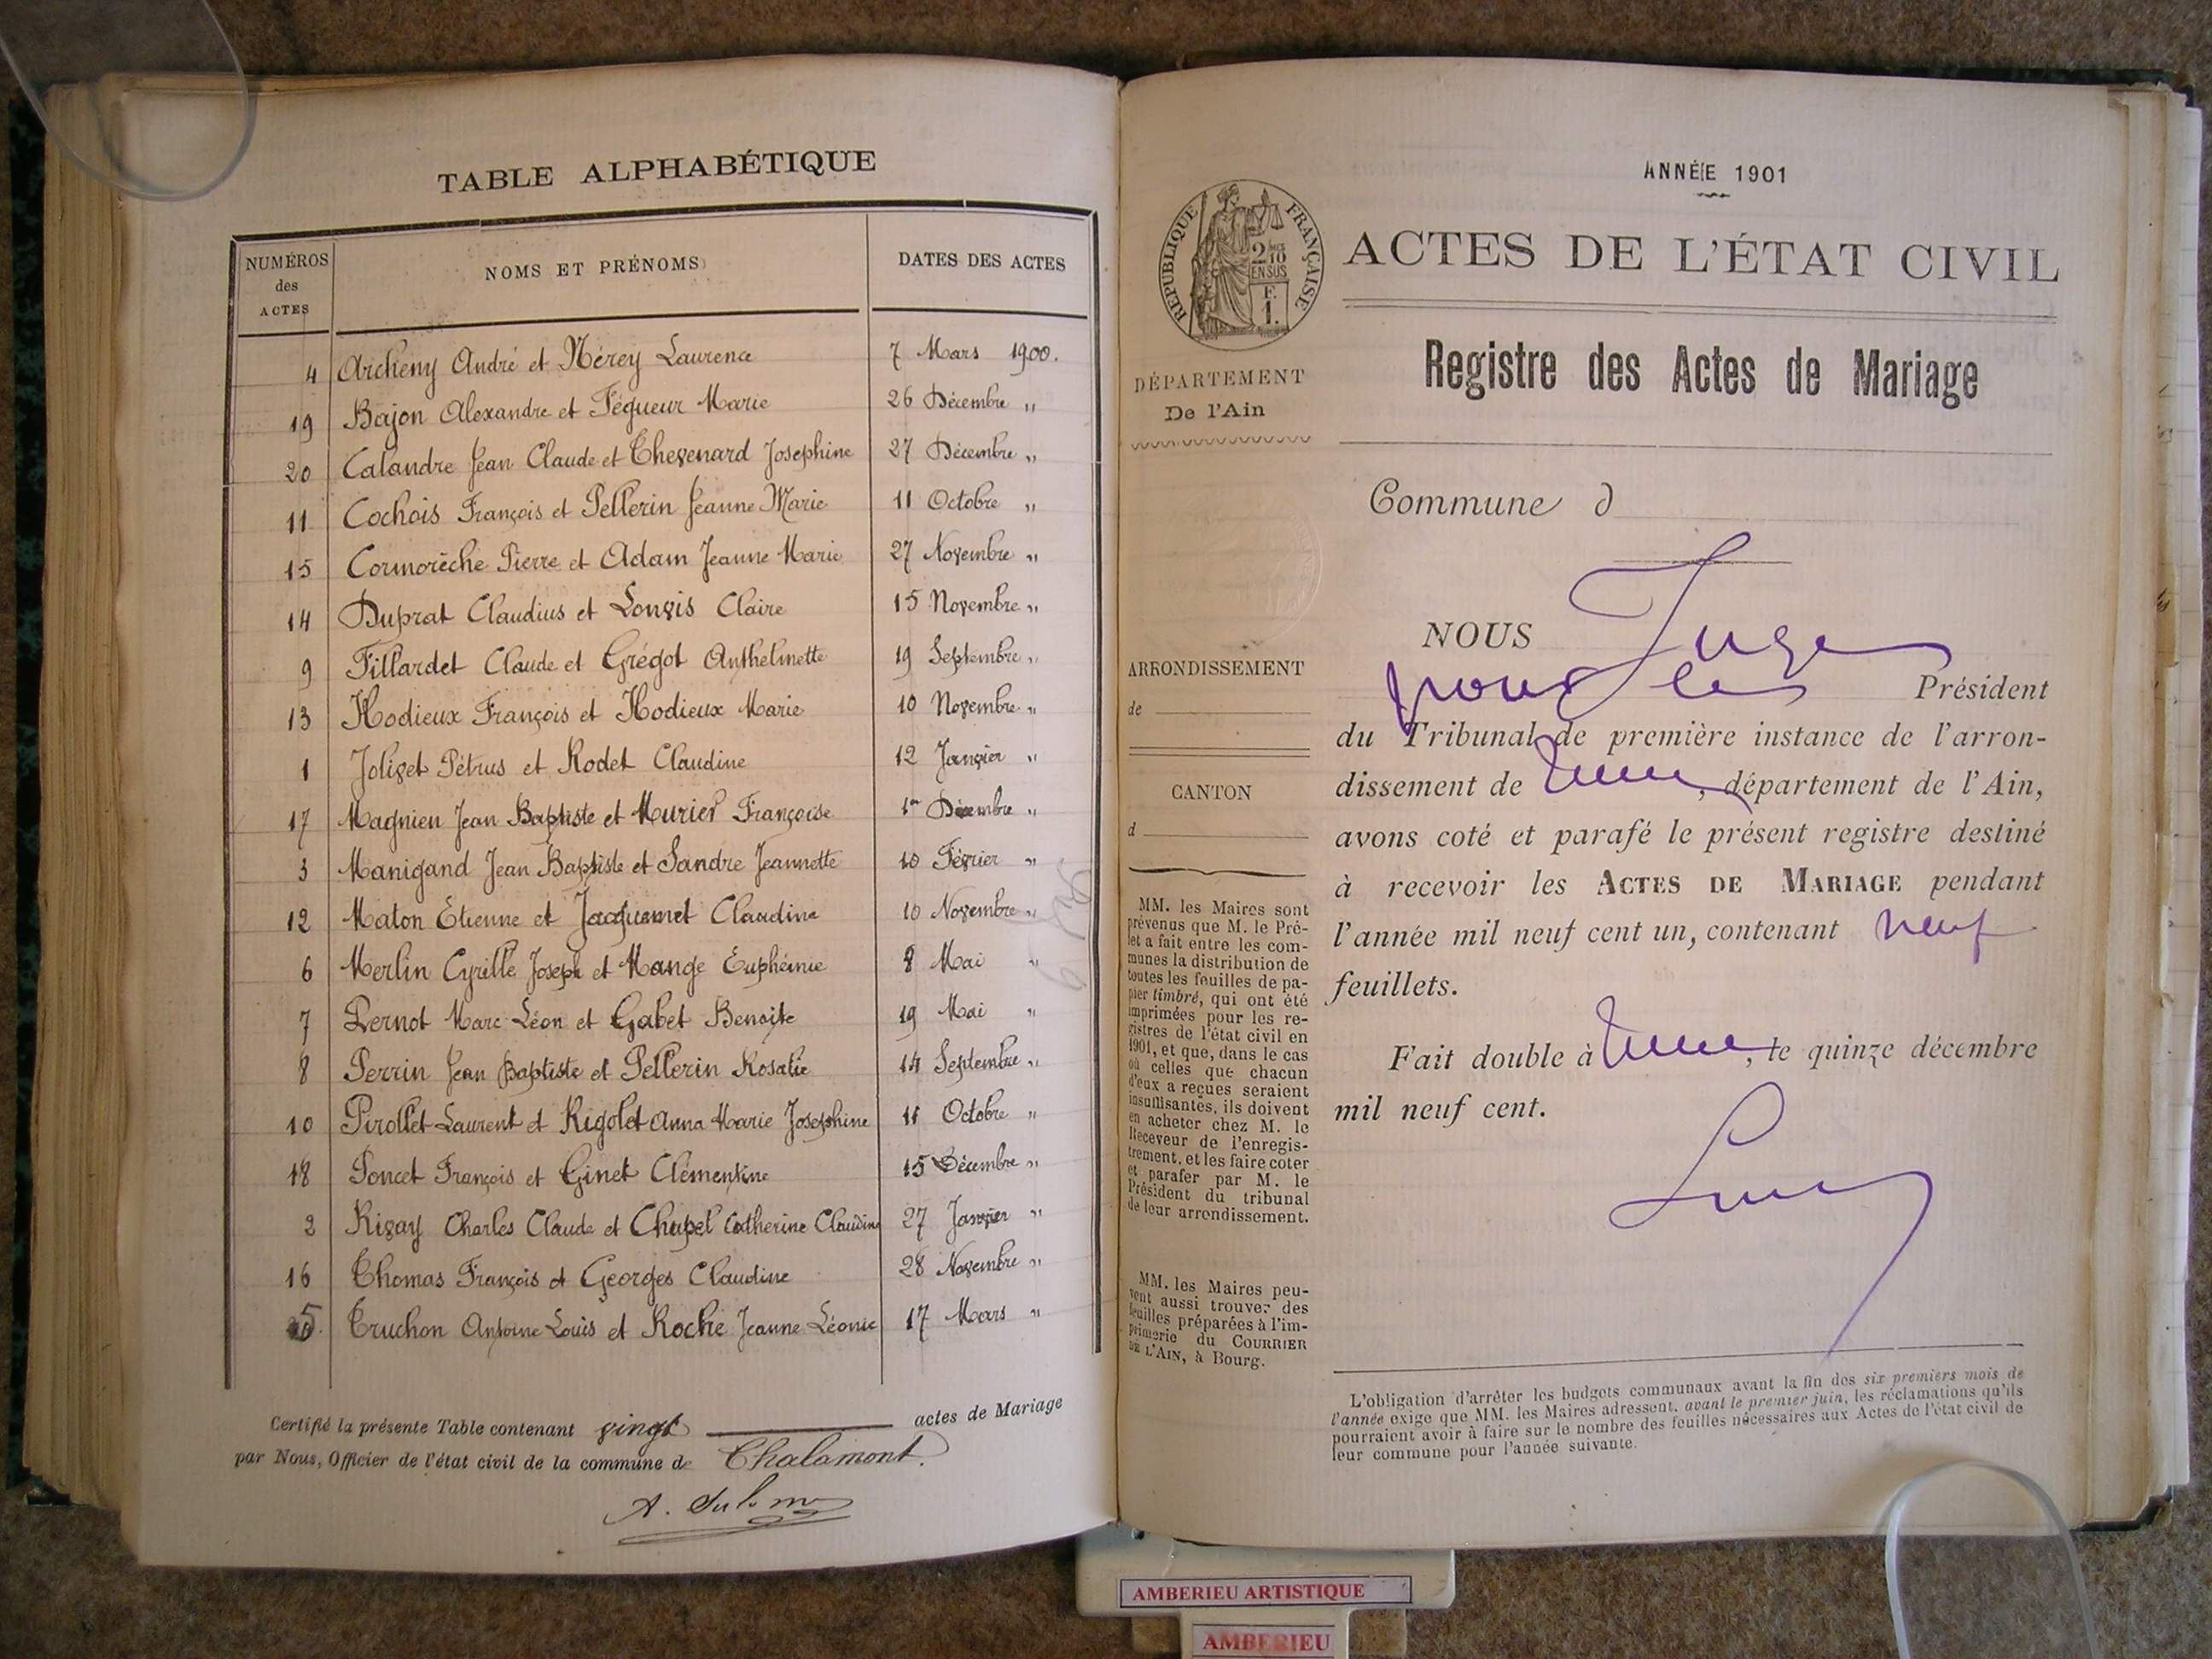 TABLE ALPHABÉTIQUE
NUMÉROS des ACTES NOMS ET PRÉNOMS DATES DES ACTES
4 Archeny André et Nérey Laurence 7 Mars 1900.
19 Bajon Alexandre et Tégueur Marie 26 Décembre "
20 Calandre Jean Claude et Chevenard Josephine 27 Décembre "
11 Cochois François et Pellerin Jeanne Marie 11 Octobre "
15 Cormorèche Pierre et Adam Jeanne Marie 27 Novembre "
14 Duprat Claudius et Louvis Claire 15 Novembre "
9 Fillardet Claude et Grégot Anthelmette 19 Septembre "
13 Hodieux François et Hodieux Marie 10 Novembre "
1 Jolivet Pétrus et Rodet Claudine 12 Janvier "
17 Magnien Jean Baptiste et Murier Françoise 1er Décembre "
3 Manigand Jean Baptiste et Sandre Jeannette 10 Février "
12 Maton Etienne et Jacquemet Claudine 10 Novembre "
6 Merlin Cyrille Joseph et Mange Euphémie 8 Mai "
7 Pernot Marc Léon et Gabet Benoite 19 Mai "
8 Perrin Jean Baptiste et Pellerin Rosalie 14 Septembre "
10 Pirollet Laurent et Rigolet Anna Marie Josephine 11 Octobre "
18 Poncet François et Ginet Clémentine 15 Décembre "
2 Rivay Charles Claude et Chapel Catherine Claudine 27 Janvier "
16 Thomas François et Georges Claudine 28 Novembre "
5 Truchon Antoine Louis et Roche Jeanne Léonie 17 Mars "
Certifié la présente Table contenant vingt actes de Mariage
par Nous, Officier de l'état civil de la commune de Chalamont.
ANNÉE 1901
RÉPUBLIQUE FRANÇAISE
2 DMES 10 EN SUS
F. 1.
ACTES DE L'ÉTAT CIVIL
Registre des Actes de Mariage
DÉPARTEMENT
De l'Ain
Commune d
ARRONDISSEMENT
de
CANTON
d
MM. les Maires sont
prévenus que M. le Pré-
fet a fait entre les com-
munes la distribution de
toutes les feuilles de pa-
pier timbré, qui ont été
imprimées pour les re-
gistres de l'état civil en
1901, et que, dans le cas
où celles que chacun
d'eux a reçues seraient
insuffisantes, ils doivent
en acheter chez M. le
Receveur de l'enregis-
trement, et les faire coter
et parafer par M. le
Président du tribunal
de leur arrondissement.
MM. les Maires peu-
vent aussi trouver des
feuilles préparées à l'im-
primerie du COURRIER
DE L'AIN, à Bourg.
NOUS Juge
pour le Président
du Tribunal de première instance de l'arron-
dissement de , département de l'Ain,
avons coté et parafé le présent registre destiné
à recevoir les ACTES DE MARIAGE pendant
l'année mil neuf cent un, contenant neuf
feuillets.
Fait double à , le quinze décembre
mil neuf cent.
L'obligation d'arrêter les budgets communaux avant la fin des six premiers mois de
l'année exige que MM. les Maires adressent, avant le premier juin, les réclamations qu'ils
pourraient avoir à faire sur le nombre des feuilles nécessaires aux Actes de l'état civil de
leur commune pour l'année suivante.
AMBERIEU ARTISTIQUE
AMBERIEU